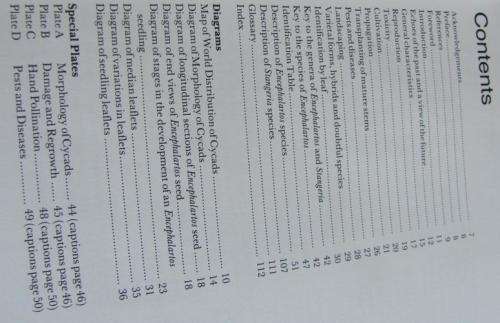 Contents
Acknowledgements
Preface
References
Foreword
Introduction
Echoes of the past and a view of the future
General characteristics
Reproduction
Toxicity
Cultivation
Propagation
Transplanting of mature stems
Pests and diseases
Landscaping
Varietal forms, hybrids and doubtful species
Identification by leaf
Key to the genera of Encephalartos and Stangeria
Key to the species of Encephalartos
Identification Table
Description of Encephalartos species
Description of Stangeria species ........ 107
Glossary ........ 111
Index ........ 112
Diagrams
Map of World Distribution of Cycads ........ 10
Diagram of Morphology of Cycads ........ 14
Diagram of longitudinal sections of Encephalartos seed ........ 18
Diagram of end views of Encephalartos seed ........ 18
Diagram of stages in the development of an Encephalartos
seedling ........ 23
Diagram of median leaflets ........ 31
Diagram of variations in leaflets ........ 35
Diagram of seedling leaflets ........ 36
Special Plates
Plate A Morphology of Cycads ...... 44 (captions page 46)
Plate B Damage and Regrowth ..... 45 (captions page 46)
Plate C Hand Pollination ........ 48 (captions page 50)
Plate D Pests and Diseases ........ 49 (captions page 50)